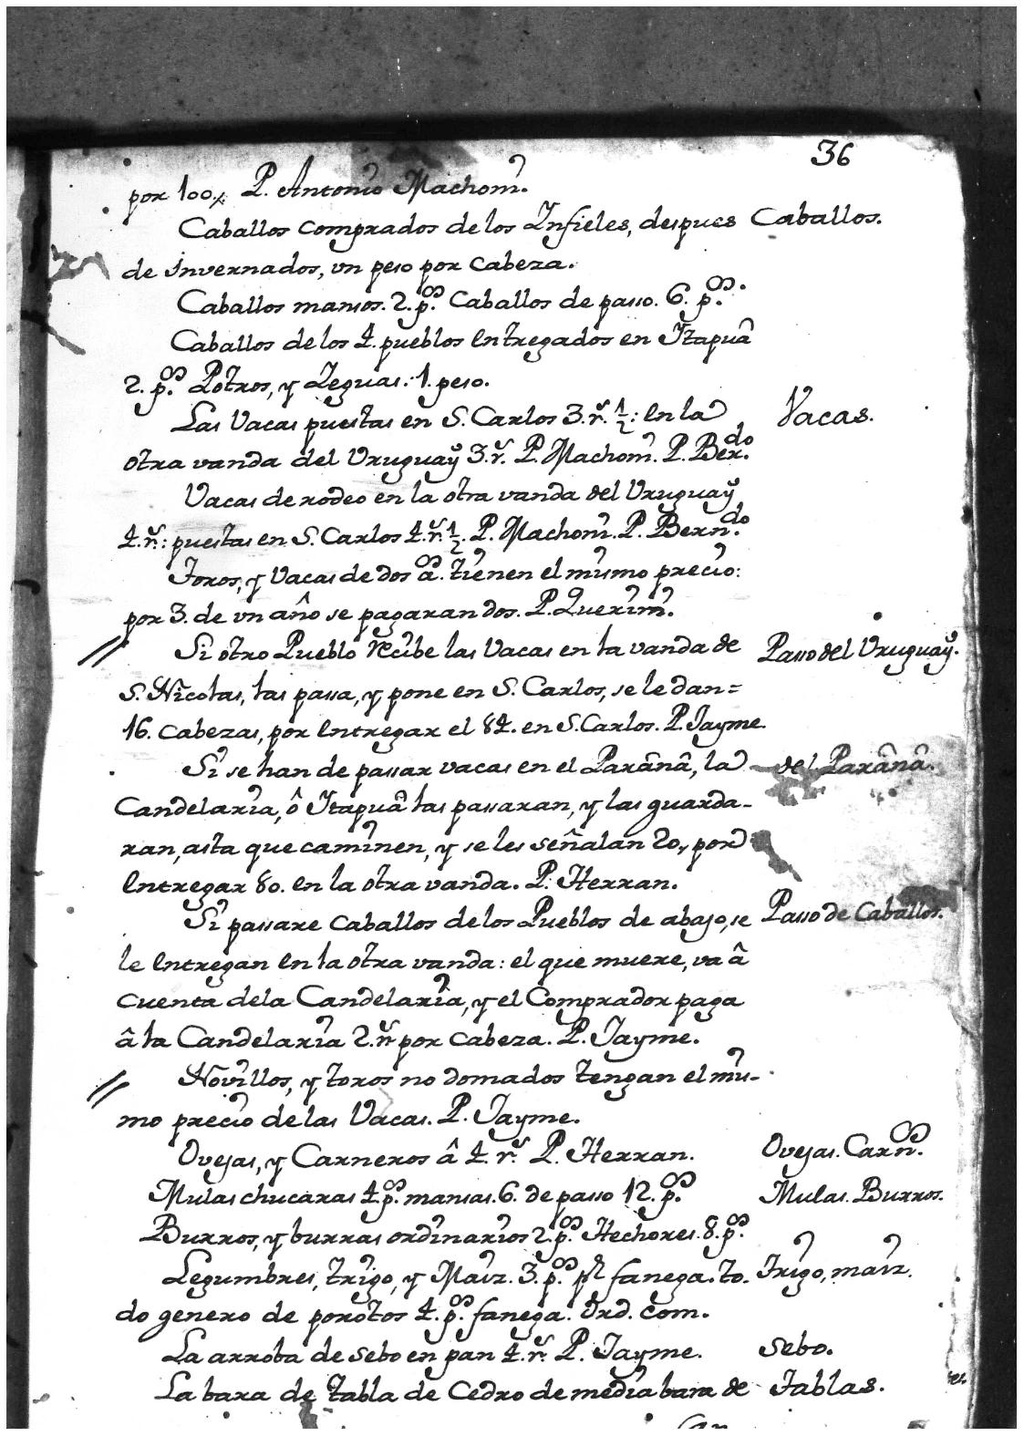 36
por 100., P. Antonio Machoni.
Caballos comprados de los Infieles, despues Caballos.
de invernados, vn peso por cabeza.
Caballos mansos. 2. p.os Caballos de passo. 6. p.os
Caballos de los 4. pueblos entregados en Itapuâ
2. p.os Potros, y Yeguas. 1. peso.
Las Vacas puestas en S. Carlos 3. r.s 1/2: en la Vacas.
otra vanda del Uruguaÿ 3. r.s P. Machoni. P. Ber.do
Vacas de rodeo en la otra vanda del Uruguaÿ
4. r.s: puestas en S. Carlos 4. r.s 1/2. P. Machoni. P. Bern.do
Toros, y Vacas de dos a.os tienen el mismo precio:
por 3. de vn año se pagaran dos. P. Querini.
// Si otro Pueblo recibe las Vacas en la vanda de Passo del Uruguaÿ.
S. Nicolas, las passa, y pone en S. Carlos, se le dan=
16. cabezas, por entregar el 84. en S. Carlos. P. Jayme.
Si se han de passar vacas en el Paranâ, la del Paranâ.
Candelaria, ô Itapuâ las passaran, y las guarda-
ran, asta que caminen, y se les señalan 20., por
entregar 80. en la otra vanda. P. Herran.
Si passare caballos de los Pueblos de abajo, se Passo de Caballos.
le entregan en la otra vanda: el que muere, va â
cuenta dela Candelaria, y el Comprador paga
â la Candelaria 2. r.s por cabeza. P. Jayme.
// Novillos, y toros no domados tengan el mis-
mo precio de las Vacas. P. Jayme.
Ovejas, y Carneros â 4. r.s P. Herran. Ovejas. Carn.os
Mulas chucaras 4. p.os mansas. 6. de passo 12. p.os Mulas. Burros.
Burros, y burras ordinarios 2. p.os Hechores. 8. p.os
Legumbres, trigo, y Maiz. 3. p.os p.r fanega. to- Trigo, maiz.
do genero de porotos 4. p.os fanega. Ord. com.
La arroba de sebo en pan 4. r.s P. Jayme. Sebo.
La bara de tabla de Cedro de media bara de Tablas.